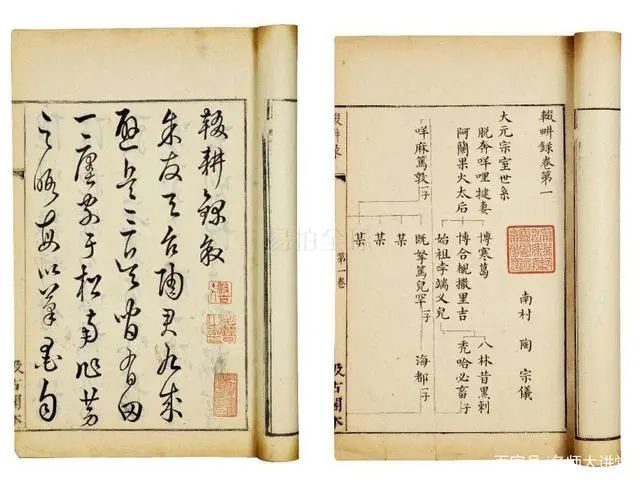 輟耕錄敘
余友天台陶君九成
避兵三吳間有田
一廛家于松南作勞
之暇每以筆墨自
輟畊錄卷第一
南村 陶 宗儀
大元宗室世系
脫奔咩哩犍妻 博寒葛
阿蘭果火太后 博合覩撒里吉
始祖孛端乂兒
八林昔黑剌
禿哈必畜 子
咩麻篤敦 子
既拏篤兒罕 子 海都 子
某
某
某
第一卷
汲古閣本
百家号/名师大讲堂